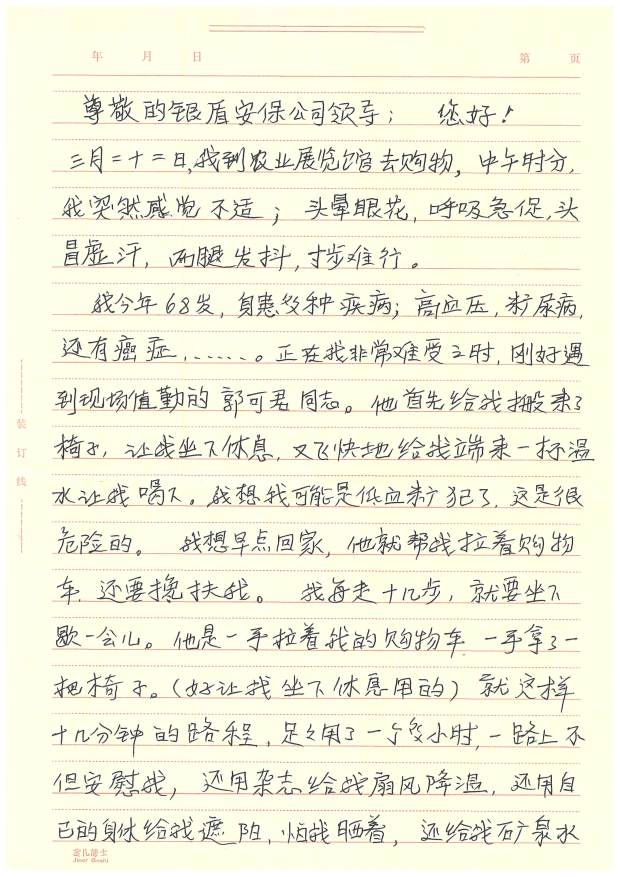 年 月 日 第 页
尊敬的银盾安保公司领导： 您好！
三月二十二日,我到农业展览馆去购物，中午时分,
我突然感觉不适；头晕眼花,呼吸急促,头
冒虚汗，两腿发抖,寸步难行。
我今年68岁，身患多种疾病；高血压,糖尿病,
还有癌症,……。正在我非常难受之时,刚好遇
到现场值勤的郭可君同志。他首先给我搬来了
椅子，让我坐下休息，又飞快地给我端来一杯温
水让我喝下。我想我可能是低血糖犯了，这是很
危险的。 我想早点回家，他就帮我拉着购物
车,还要搀扶我。 我每走十几步，就要坐下
歇一会儿。他是一手拉着我的购物车,一手拿了一
把椅子。(好让我坐下休息用的)就这样
十几分钟的路程，足足用了一个多小时,一路上不
但安慰我，还用杂志给我扇风降温，还用自
己的身体给我遮阳,怕我晒着，还给我矿泉水
装
订
线